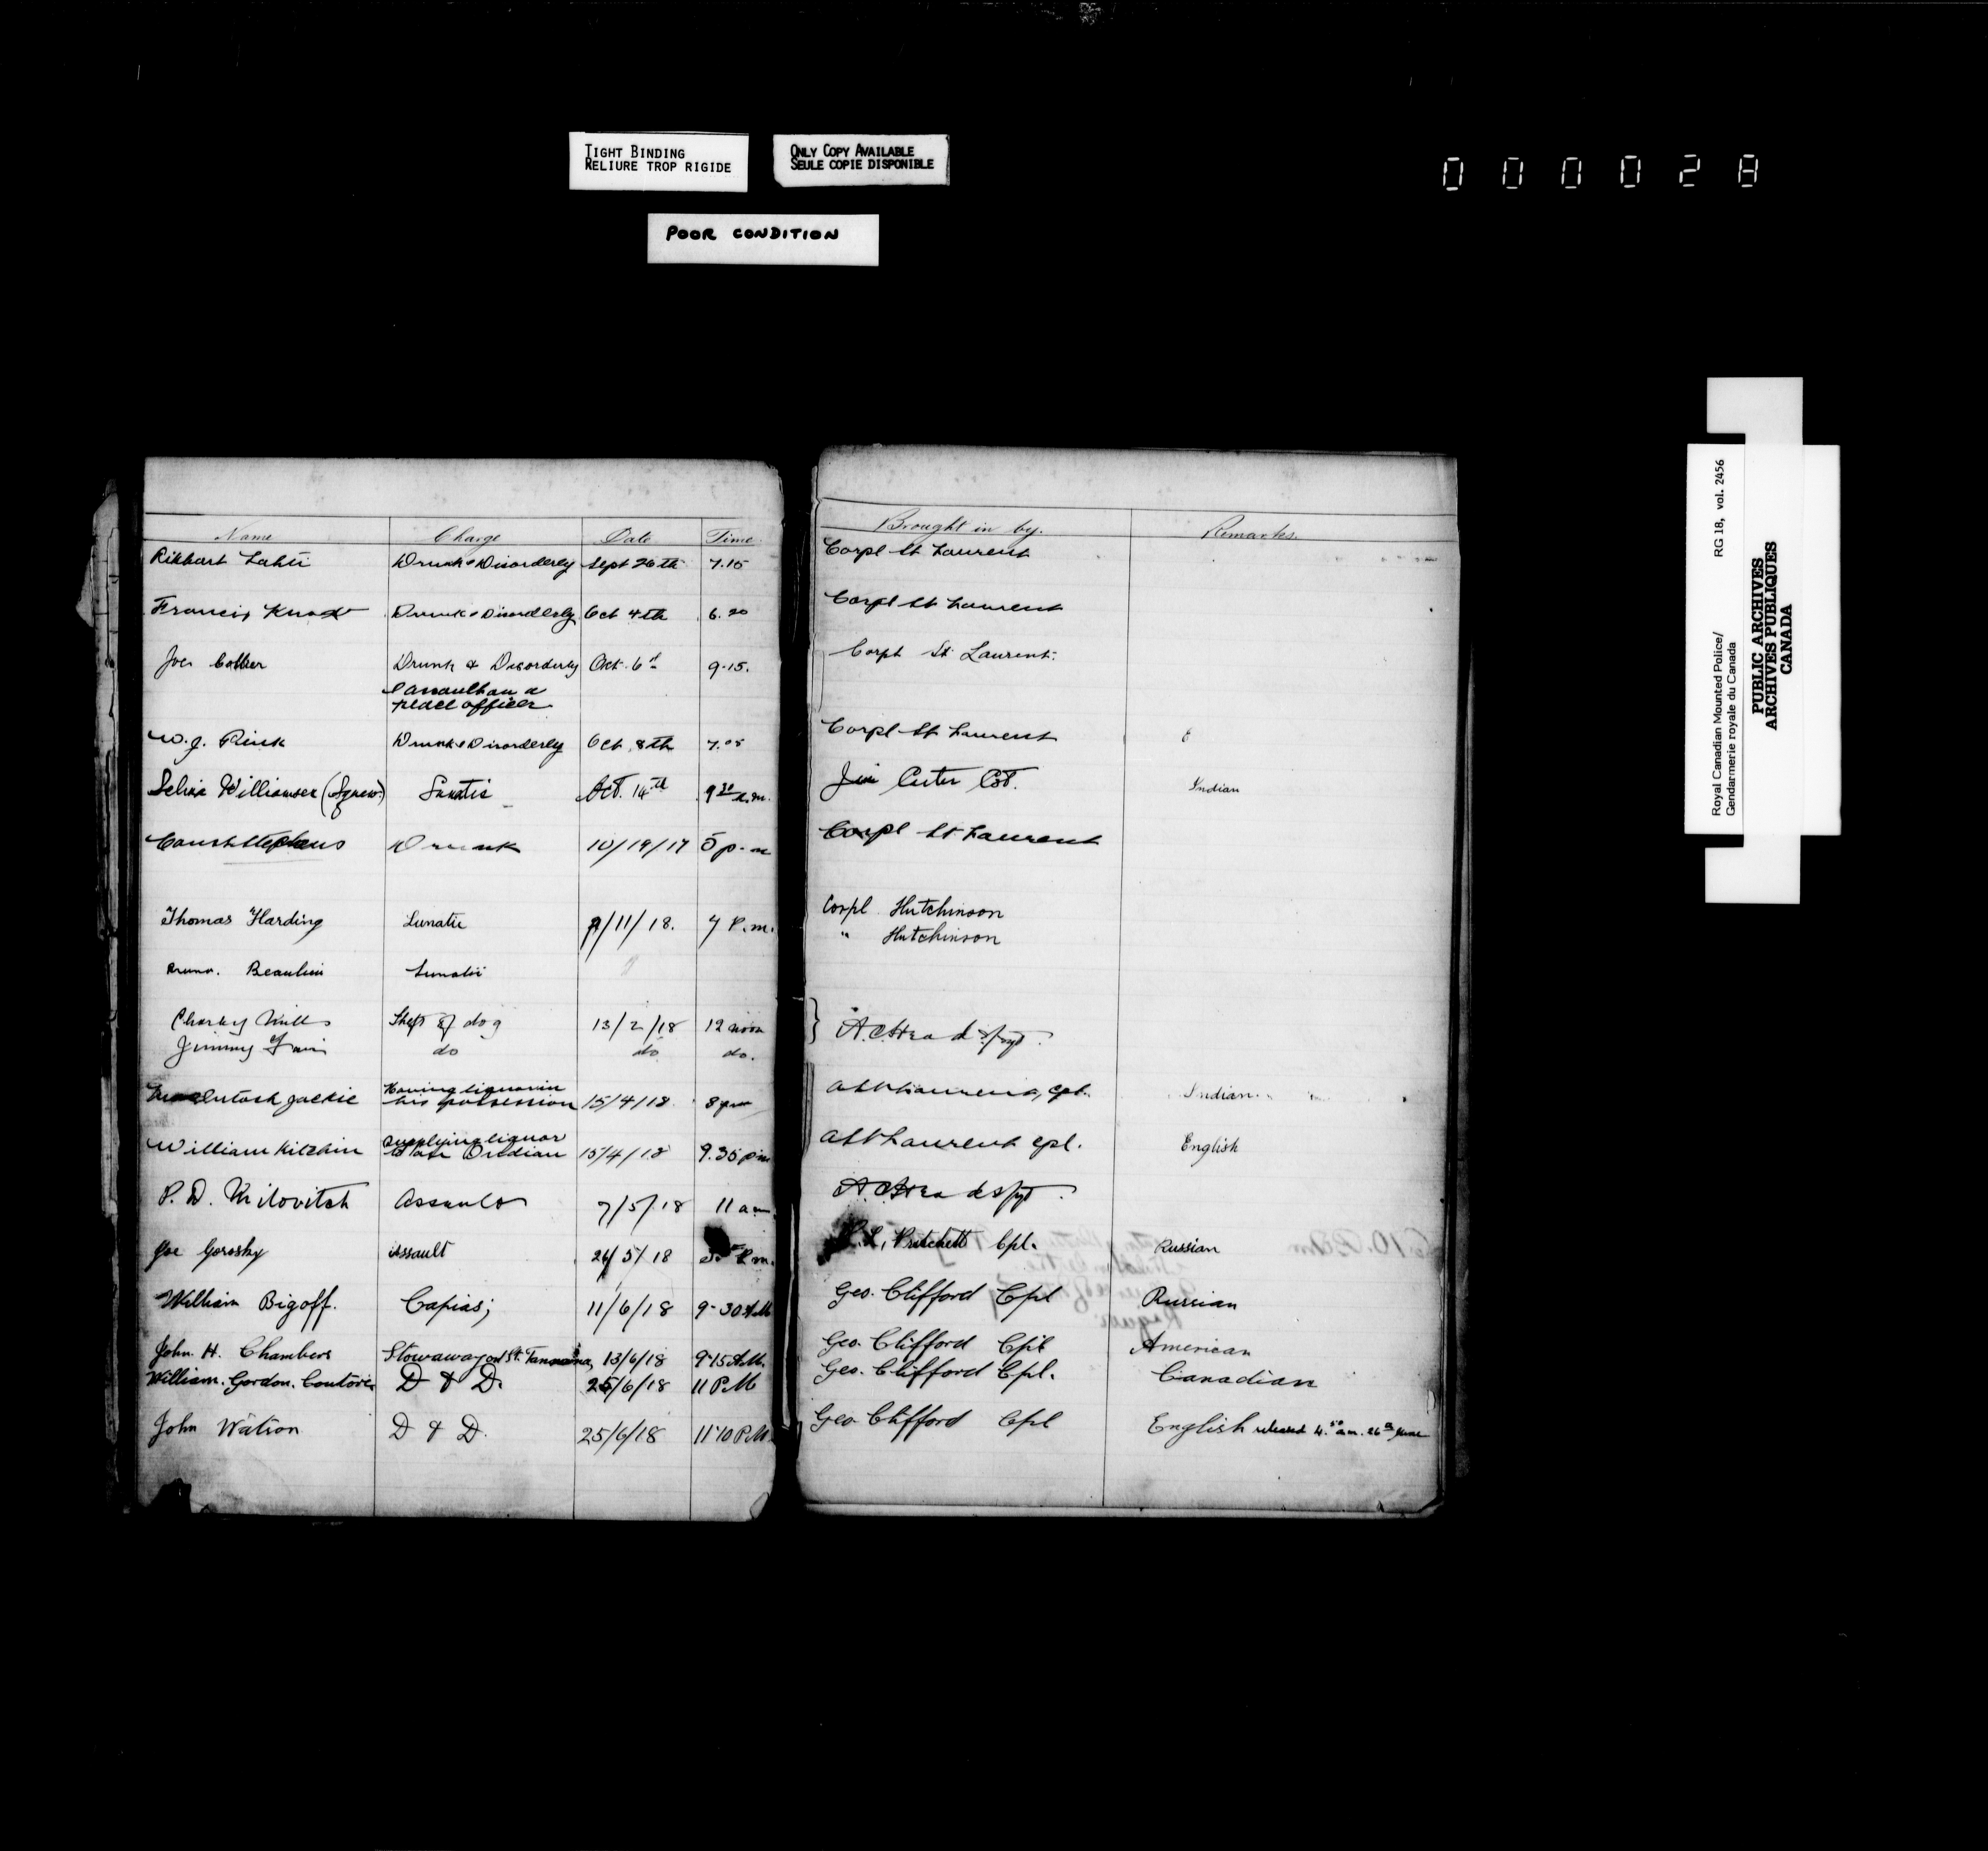 TIGHT BINDING
RELIURE TROP RIGIDE
ONLY COPY AVAILABLE
SEULE COPIE DISPONIBLE
POOR CONDITION
000028
Royal Canadian Mounted Police/ RG 18, vol. 2456
Gendarmerie royale du Canada
PUBLIC ARCHIVES
ARCHIVES PUBLIQUES
CANADA
Name Charge Date Time Brought in by. Remarks.
Rikhart Lahti Drunk & Disorderly Sept 26th 7.15 Corpl St Laurent
Francis Knox Drunk & Disorderly Oct 4th 6.20 Corpl St Laurent
Joe Drunk & Disorderly Oct. 6th 9.15. Corpl St. Laurent.
& assault on a
peace officer
W.J. Rink Drunk & Disorderly Oct 8th 7.05 Corpl St Laurent
Williamser Lunatic Oct. 14th 9 30 Cst. Indian
Stephens Drunk 10/19/17 5 p.m Corpl St Laurent
Thomas Harding Lunatic /11/18. 7 P.m. Corpl Hutchinson
" Hutchinson
Beaulieu Lunatic
Charley Mills Theft of dog 13/2/18 12 noon A. C. Head S/Sgt.
Jimmy do do do.
Jackie Having liquor in
his possession 15/4/18 8 pm Cpl. Indian
William Kitchin Supplying liquor
to an Indian 15/4/18 9.35 pm A St Laurent Cpl. English
P. D. Milovitch Assault 7/5/18 11 am. A. C. Head S/Sgt.
Joe Gorosky Assault 26/5/18 P.m. Pritchett Cpl. Russian
William Bigoff. Capias; 11/6/18 9-30 A.M Geo. Clifford Cpl Russian
John. H. Chambers Stowaway on St. Tanana, 13/6/18 9-15 A.M. Geo. Clifford Cpl American
William. Gordon. D & D. 25/6/18 11 P.M Geo. Clifford Cpl. Canadian
John Watson D & D. 25/6/18 11-10 P.M. Geo Clifford Cpl English released 4.50 a.m. 26th June